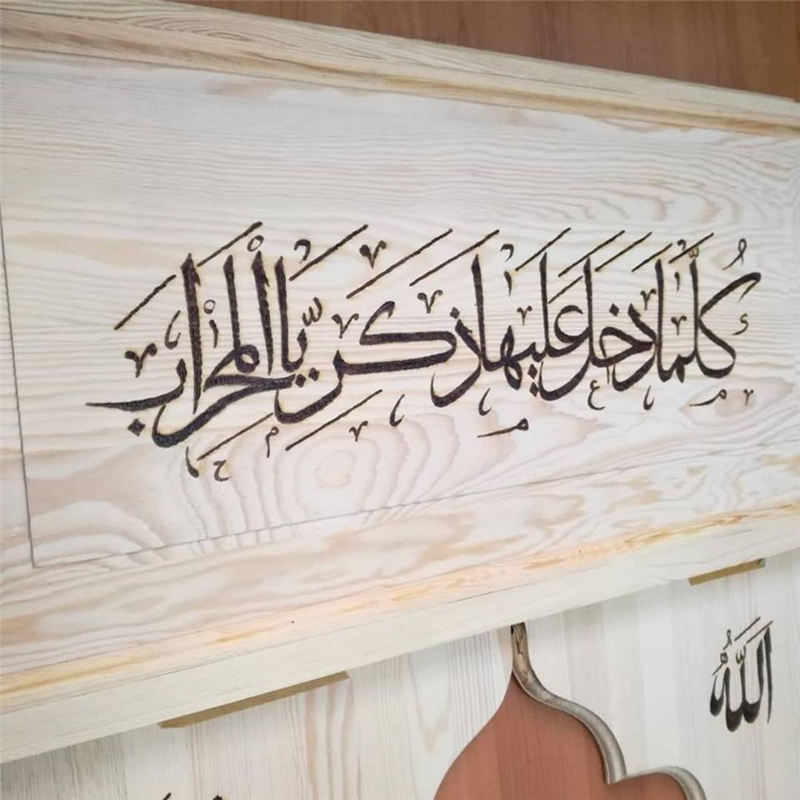 كلما دخل عليها زكريا المحراب
الله